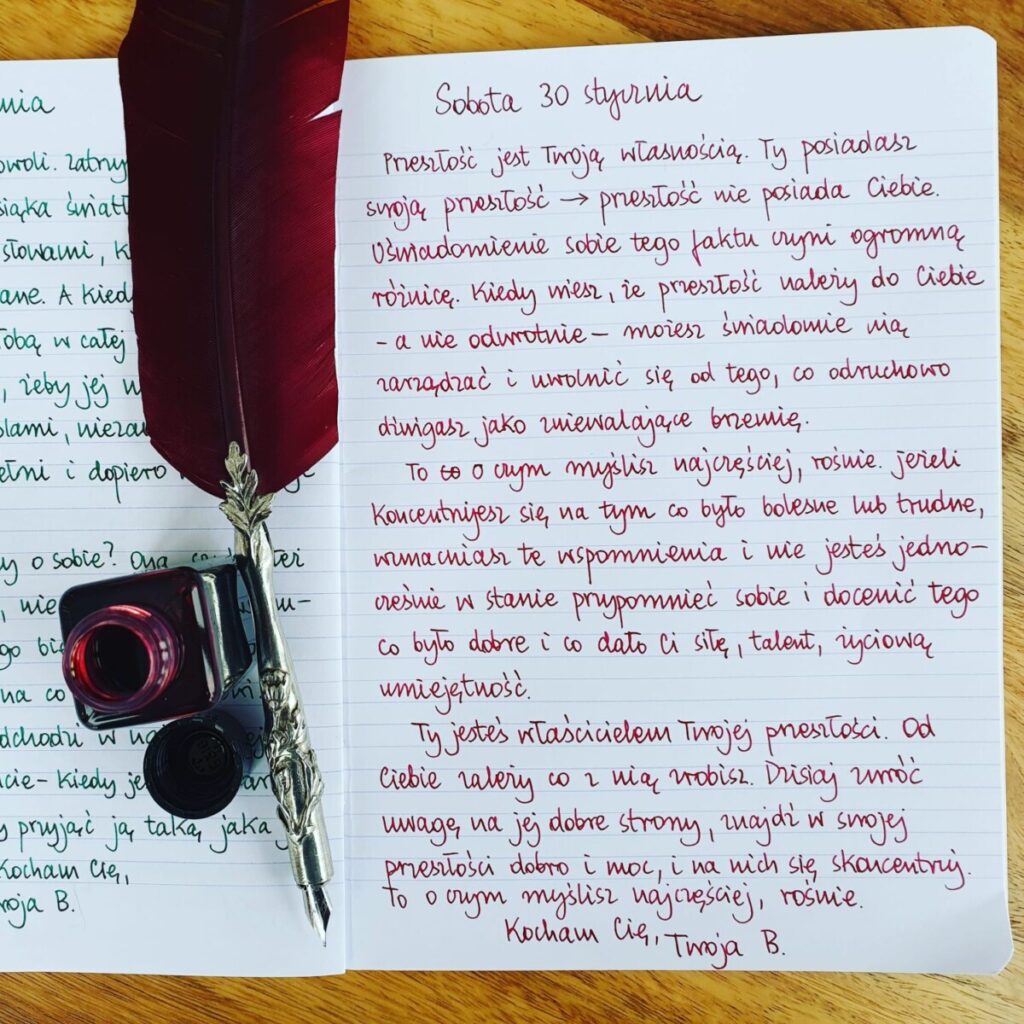 nia
owoli. zatrzy
siąka światł
słowami, k
ane. A kiedy
Tobą w całej
, żeby jej
lami, niezau
ełni i dopiero
y o sobie? Ona
, nie
go
na co
dchodzi w
cie – kiedy je
y przyjąć ją taką, jaka
Kocham Cię,
woja B.
Sobota 30 stycznia
Przeszłość jest Twoją własnością. Ty posiadasz
swoją przeszłość → przeszłość nie posiada Ciebie.
Uświadomienie sobie tego faktu czyni ogromną
różnicę. Kiedy wiesz, że przeszłość należy do Ciebie
- a nie odwrotnie – możesz świadomie nią
zarządzać i uwolnić się od tego, co odruchowo
dźwigasz jako zniewalające brzemię.
To o czym myślisz najczęściej, rośnie. Jeżeli
koncentrujesz się na tym co było bolesne lub trudne,
wzmacniasz te wspomnienia i nie jesteś jedno-
cześnie w stanie przypomnieć sobie i docenić tego
co było dobre i co dało Ci siłę, talent, życiową
umiejętność.
Ty jesteś właścicielem Twojej przeszłości. Od
Ciebie zależy co z nią zrobisz. Dzisiaj zwróć
uwagę na jej dobre strony, znajdź w swojej
przeszłości dobro i moc, i na nich się skoncentruj.
To o czym myślisz najczęściej, rośnie.
Kocham Cię, Twoja B.